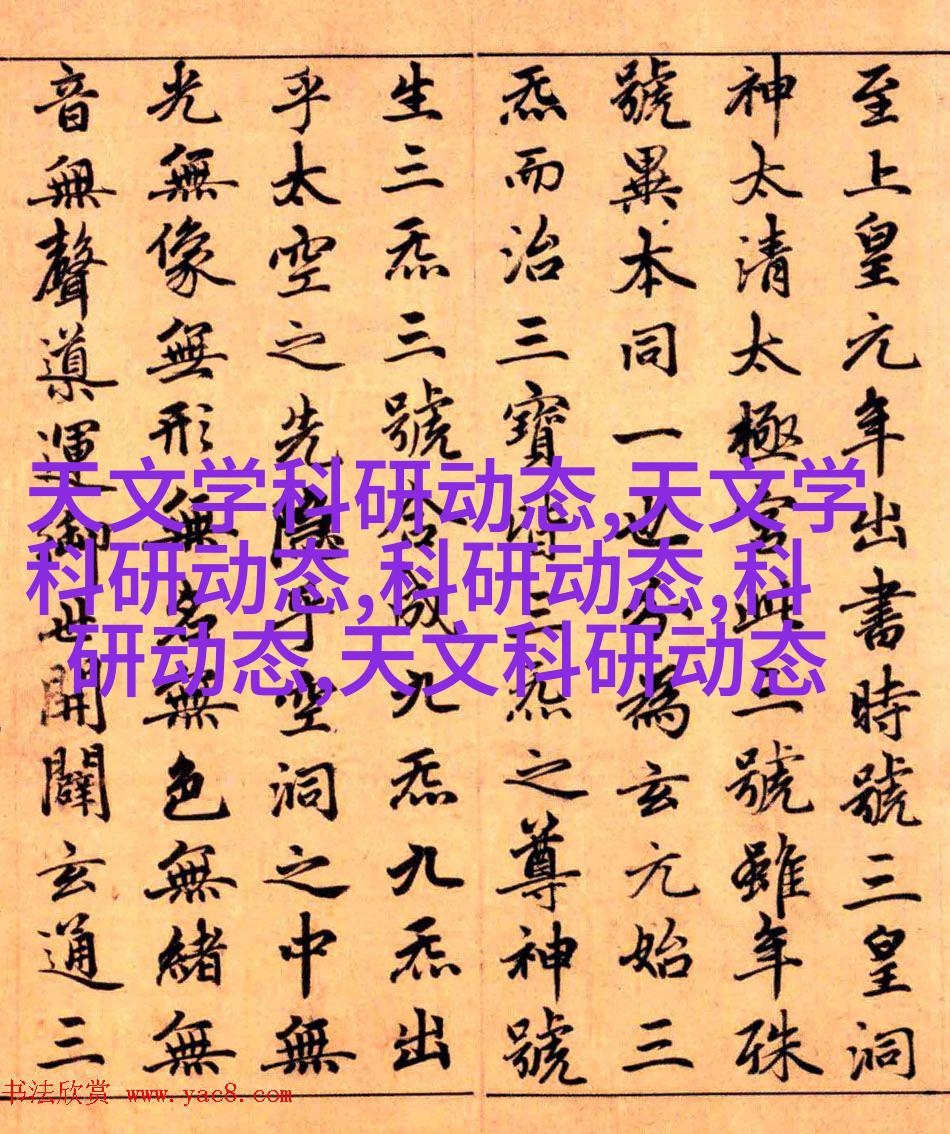 至上皇元年出書時號三皇洞
神太清太極宮此三號雖年殊
號異本同一也分為玄元始三
炁而治三寶皆三炁之尊神號
生三炁三號合成九炁九炁出
乎太空之先隱乎空洞之中無
光無像無形無名無色無緒無
音無聲導運御世開闢玄通三
天文学科研动态,天文学
科研动态,科研动态,科
研动态,天文科研动态
书法欣赏 www.yac8.com